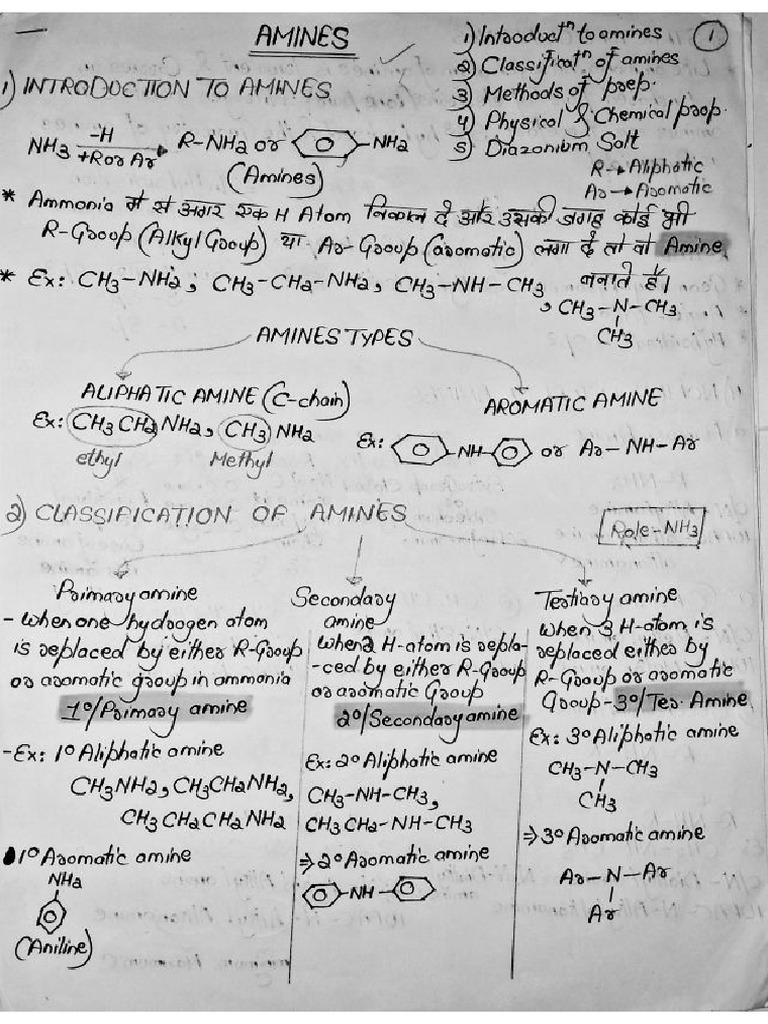 AMINES
1
1) Introductⁿ to amines
2) Classificatⁿ of amines
3) Methods of prep.
4) Physical & Chemical prop.
5) Diazonium Salt
R→Aliphatic
Ar→Aromatic
1) INTRODUCTION TO AMINES
NH3 –H +R or Ar → R–NH2 or –NH2
(Amines)
* Ammonia में से अगर एक H Atom निकाल दे और उसकी जगह कोई भी
R-Group (Alkyl Group) या Ar-Group (aromatic) लगा दें तो वो Amine
बनाते हैं।
* Ex: CH3–NH2, CH3–CH2–NH2, CH3–NH–CH3
, CH3–N–CH3
CH3
AMINES TYPES
ALIPHATIC AMINE (C-chain)
Ex: CH3CH2NH2, CH3NH2
ethyl Methyl
AROMATIC AMINE
Ex: –NH– or Ar–NH–Ar
2) CLASSIFICATION OF AMINES
Role–NH3
Primary amine
- When one hydrogen atom
is replaced by either R-Group
or aromatic group in ammonia
1°/Primary amine
- Ex: 1° Aliphatic amine
CH3NH2, CH3CH2NH2,
CH3CH2CH2NH2
1° Aromatic amine
NH2
(Aniline)
Secondary
amine
When 2 H-atom is repla-
-ced by either R-Group
or aromatic Group
2°/Secondary amine
Ex: 2° Aliphatic amine
CH3–NH–CH3,
CH3CH2–NH–CH3
⇒ 2° Aromatic amine
–NH–
Tertiary amine
When 3 H-atom is
replaced either by
R-Group or aromatic
Group - 3°/Ter. Amine
Ex: 3° Aliphatic amine
CH3–N–CH3
CH3
⇒ 3° Aromatic amine
Ar–N–Ar
Ar